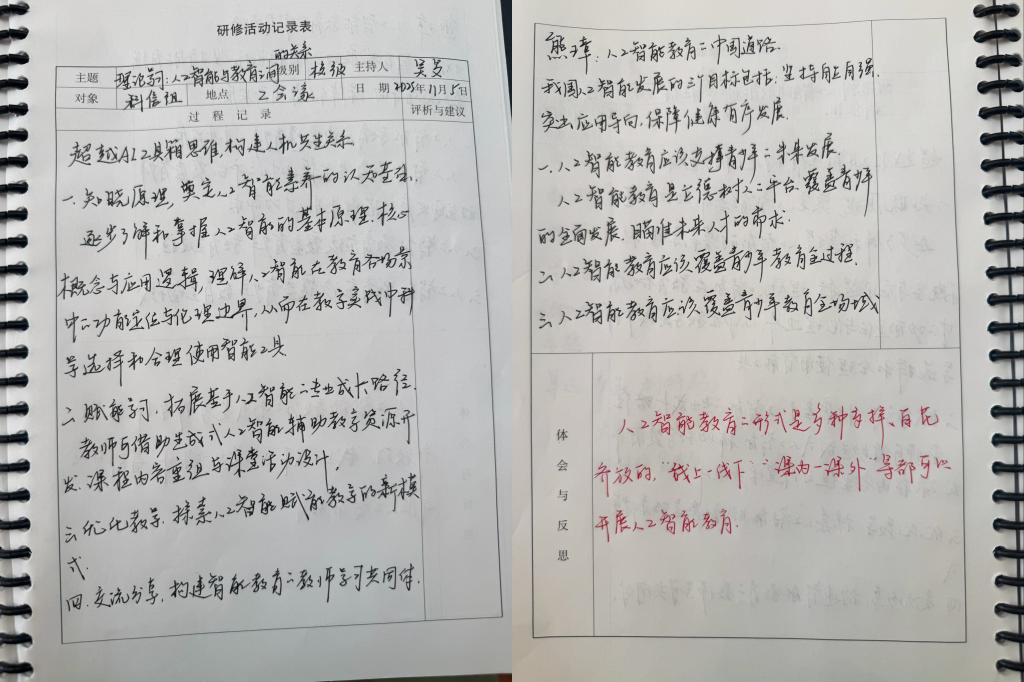 研修活动记录表
的关系
主题 理论学习:人工智能与教育之间 级别 校级 主持人
对象 科信组 地点 工会家 日期 2025年11月5日
过程记录 评析与建议
超越AI工具箱思维,构建人机共生关系
一.知晓原理,奠定人工智能素养的认知基础.
逐步了解和掌握人工智能的基本原理.核心
概念与应用逻辑,理解人工智能在教育各场景
中的功能定位与伦理边界,从而在教学实践中科
学选择和合理使用智能工具
二.赋能学习,拓展基于人工智能的专业成长路径.
教师可借助生成式人工智能辅助教学资源开
发.课程内容重组与课堂活动设计.
三.优化教学.探索人工智能赋能教学的新模
式.
四.交流分享,构建智能教育的教师学习共同体.
熊璋:人工智能教育的中国道路.
我国人工智能发展的三个目标包括:坚持自立自强.
突出应用导向,保障健康有序发展.
一.人工智能教育应该支撑青少年的未来发展.
人工智能教育是立德树人的平台.覆盖青少年
的全面发展.瞄准未来人才的需求.
二.人工智能教育应该覆盖青少年教育全过程.
三.人工智能教育应该覆盖青少年教育全场域
体会与反思
人工智能教育的形式是多种多样、百花
齐放的."线上-线下""课内-课外"等都可以
开展人工智能教育.